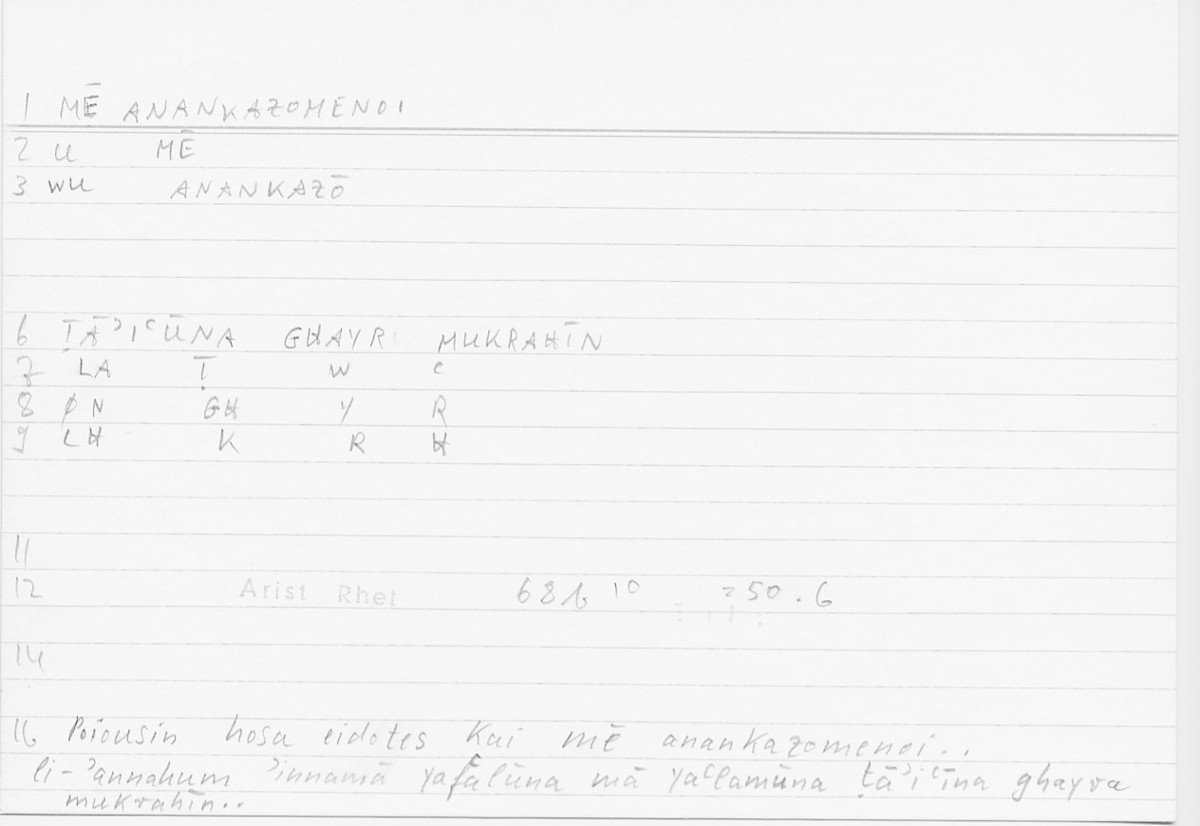 1 MĒ ANANKAZOMENOI
2 U MĒ
3 WU ANANKAZŌ
6 ṬĀʾIʿŪNA GHAYRI MUKRAHĪN
7 LA Ṭ W ʿ
8 ØN GH Y R
9 LH K R H
11
12 Arist Rhet 68b 10 = 50.6
14
16 Poiousin hosa eidotes kai mē anankazomenoi..
li-ʾannahum ʾinnamā yafʿalūna mā yaʿlamūna ṭāʾiʿīna ghayra
mukrahīn..